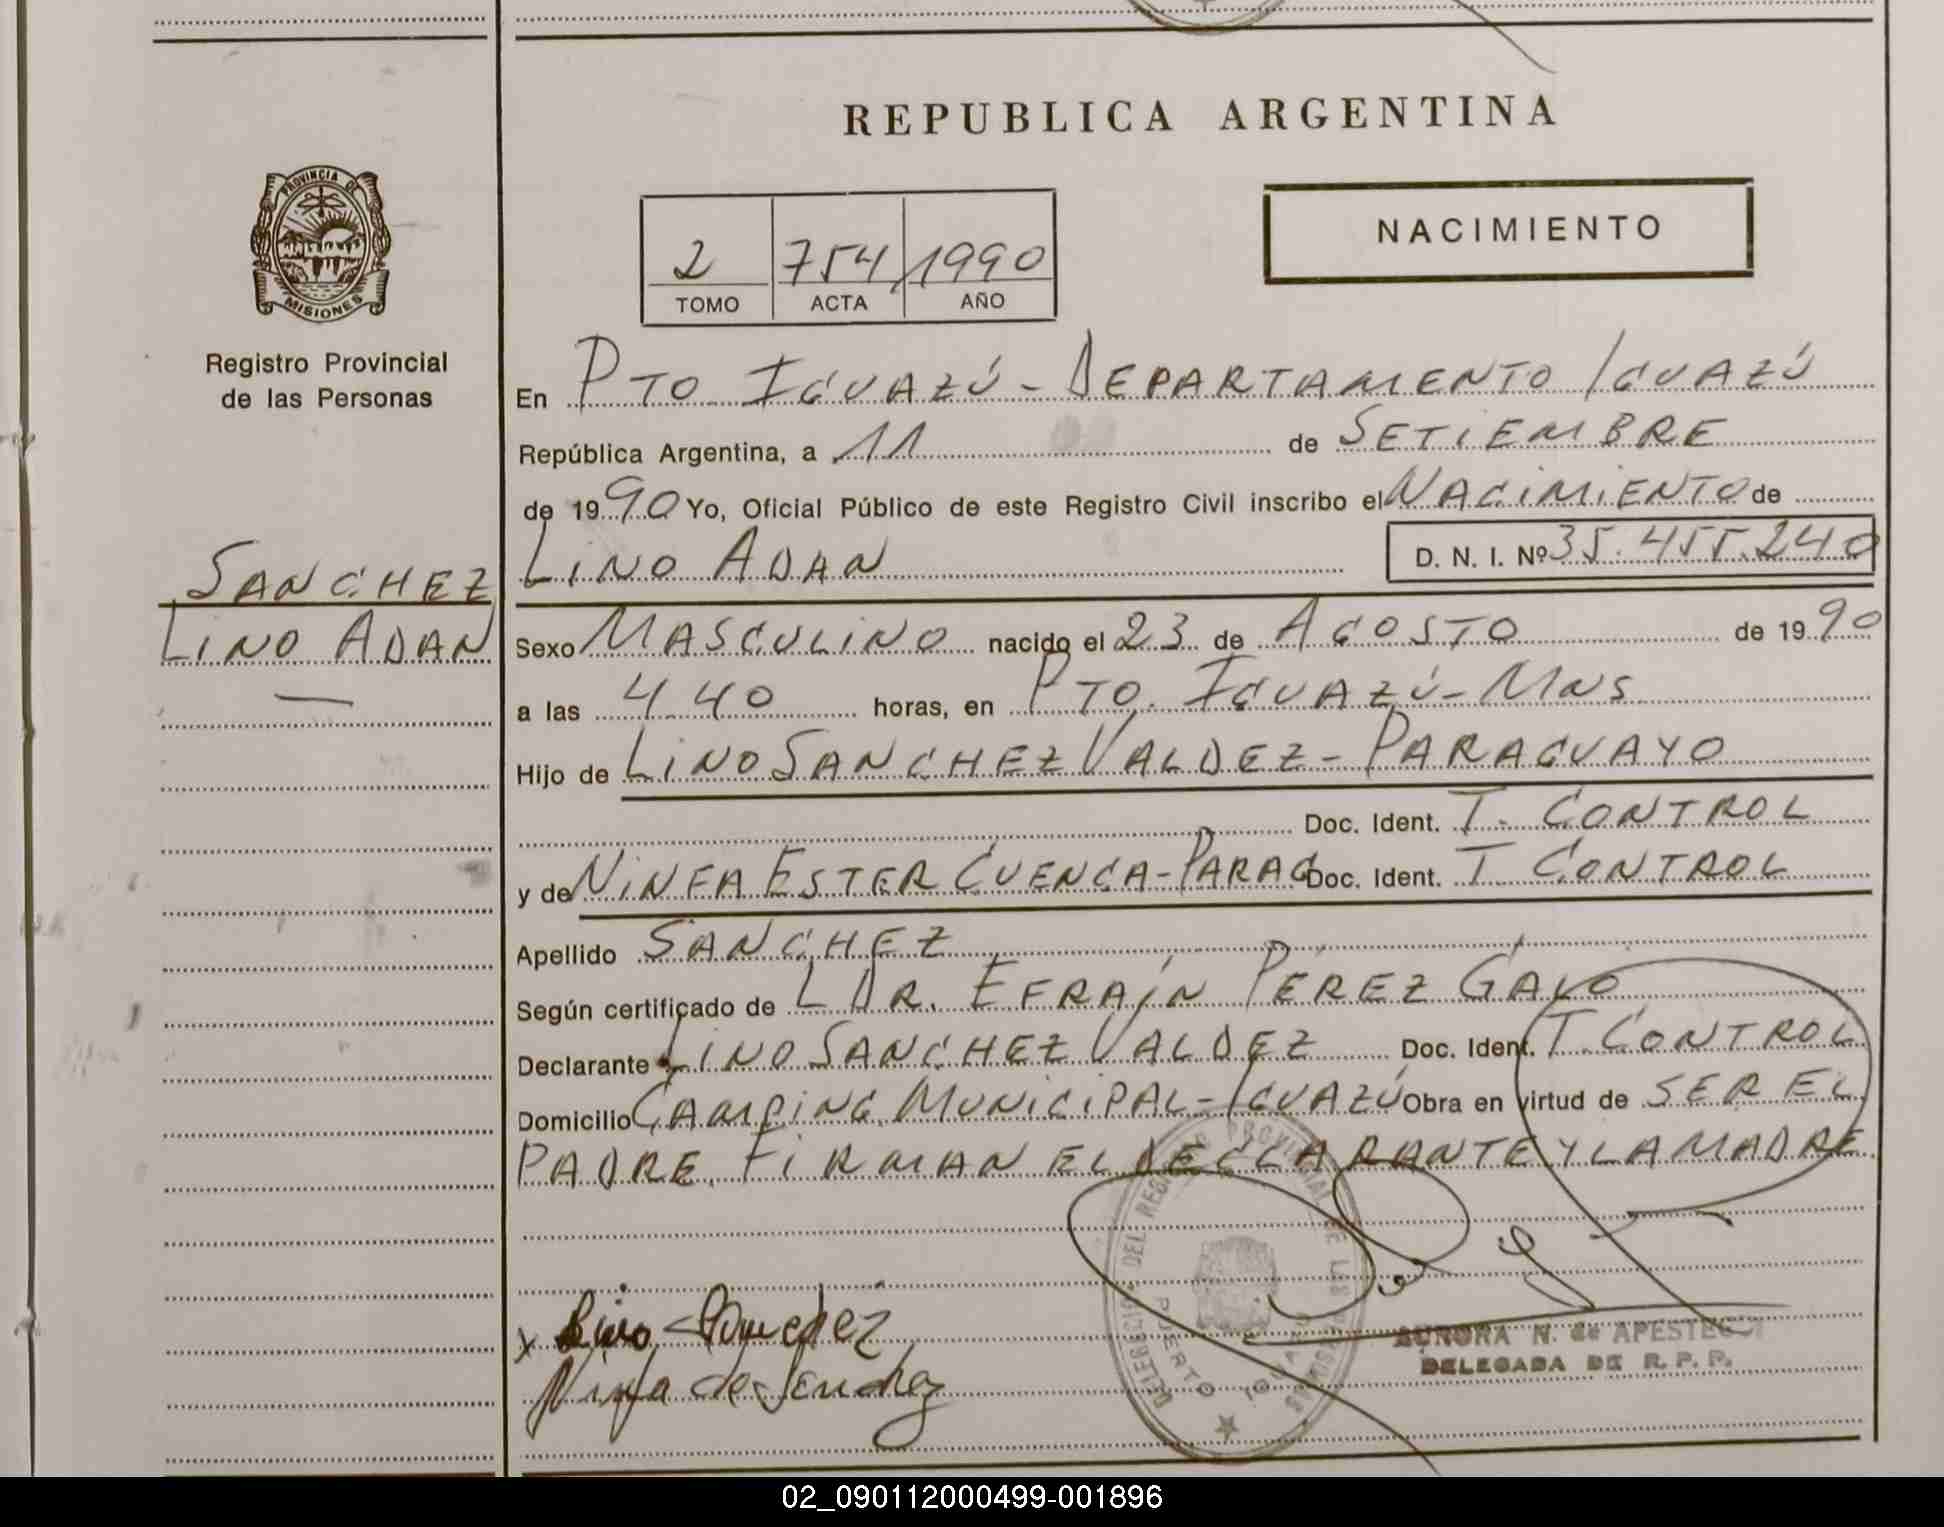 REPUBLICA ARGENTINA
PROVINCIA DE
MISIONES
Registro Provincial
de las Personas
NACIMIENTO
2 754 1990
TOMO ACTA AÑO
En PTO IGUAZÚ - DEPARTAMENTO IGUAZÚ
República Argentina, a 11 de SETIEMBRE
de 1990 Yo, Oficial Público de este Registro Civil inscribo el NACIMIENTO de
LINO ADAN D. N. I. Nº 35.455.240
SANCHEZ
LINO ADAN
Sexo MASCULINO nacido el 23 de AGOSTO de 1990
a las 4 40 horas, en PTO. IGUAZÚ - MNS
Hijo de LINO SANCHEZ VALDEZ - PARAGUAYO
Doc. Ident. T. CONTROL
y de NINFA ESTER CUENCA - PARAG Doc. Ident. T CONTROL
Apellido SANCHEZ
Según certificado de L DR. EFRAÍN PÉREZ
Declarante LINO SANCHEZ VALDEZ Doc. Ident. T. CONTROL
Domicilio CAMPING MUNICIPAL - IGUAZÚ Obra en virtud de SER EL
PADRE. FIRMAN EL DECLARANTE Y LA MADRE
DELEGACION DEL REGISTRO PROVINCIAL DE LAS PERSONAS
PUERTO IGUAZU
x Lino Sanchez
Ninfa de Sanchez
AURORA N. de
DELEGADA DE R. P. P.
02_090112000499-001896